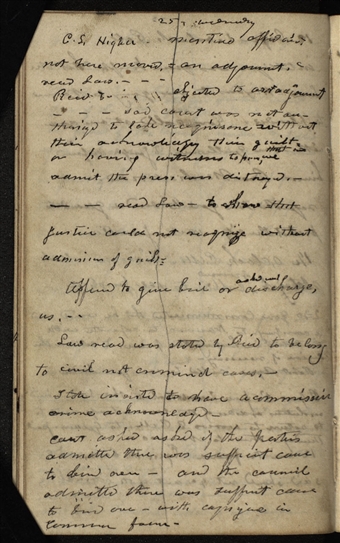 25th wednesday
C. S. Higbee - mentined affidavi
not here moved - an adjournt.
read Law. - - -
Reid objected to an adjournmt
- - - said court was not au-
thorizd to take recognisance without
their acknowledging their guilt
or having witnesses to prove that we
admit the press was distroyed -
- - - read Law - to show that
Justice could not recognize without
admission of guilt;
offered to give bail or asked will discharge
us. - -
Law read was stated by Reid to belong
to civil not criminal cases. -
to have a
crime acknowledged -
court asked of the parties
admitted there was sufficient cause
to bind over - and the council
admitted there was sufficent cause
to bind over - with in
common form -